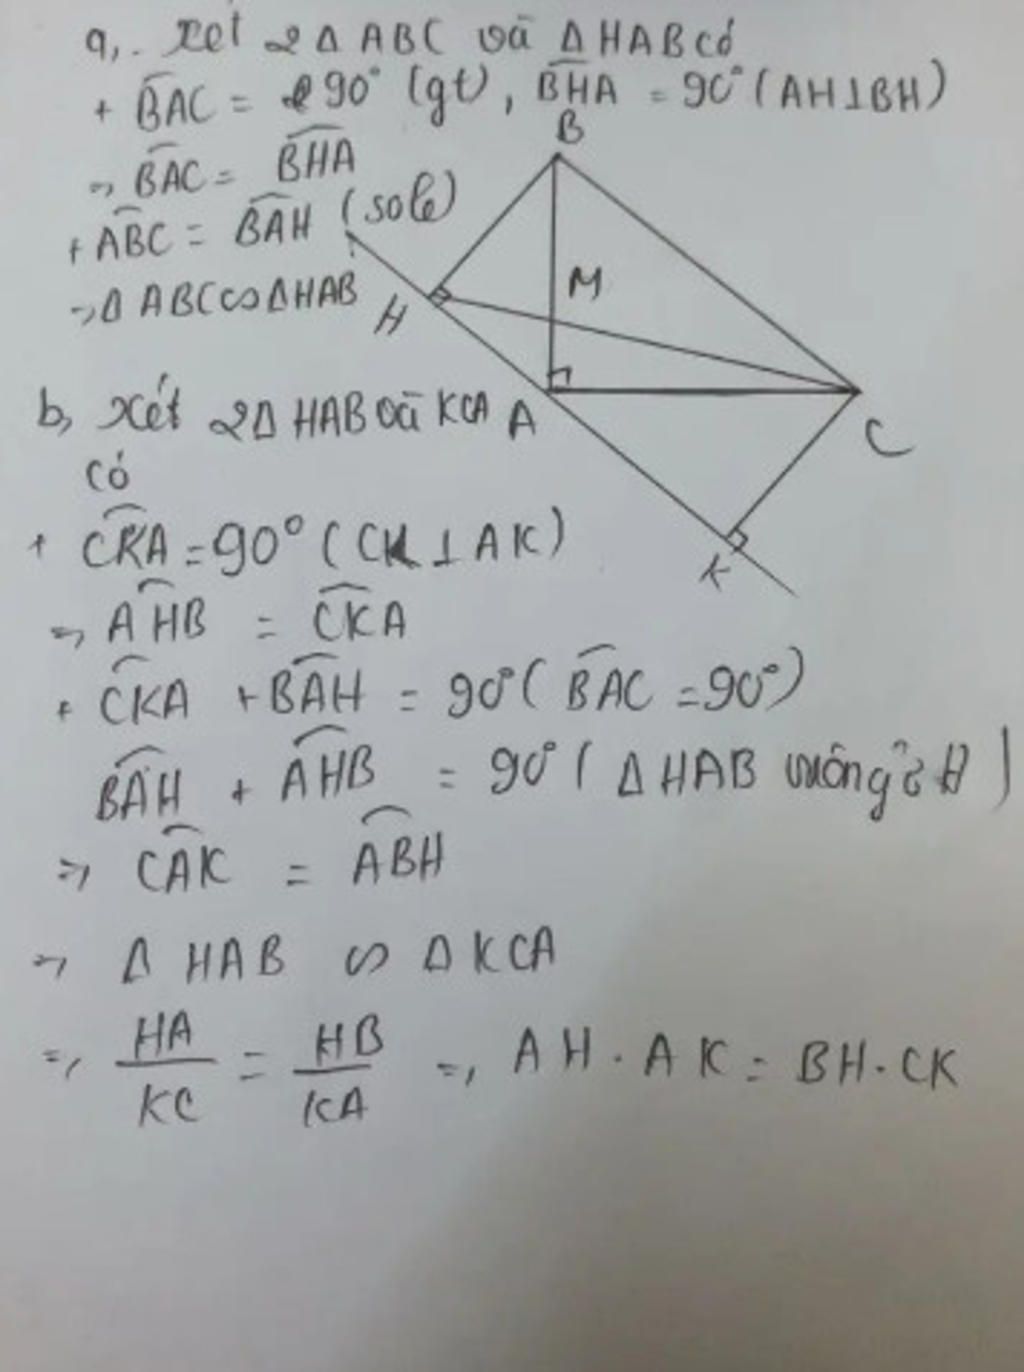 a,. Xét 2Δ ABC và ΔHAB có
+ B̂AC = 90° (gt), B̂HA = 90° (AH⊥BH)
=> B̂AC = B̂HA
+ ÂBC = B̂AH (sole)
=> Δ ABC ∽ ΔHAB
B
M
H
A
C
K
b, Xét 2Δ HAB và KCA
có
+ ĈKA = 90° (CK ⊥ AK)
=> ÂHB = ĈKA
+ ĈKA + B̂AH = 90° (B̂AC = 90°)
B̂AH + ÂHB = 90° (ΔHAB vuông ở H)
=> ĈAK = ÂBH
=> Δ HAB ∽ ΔKCA
=> HA/KC = HB/KA => AH . AK = BH . CK